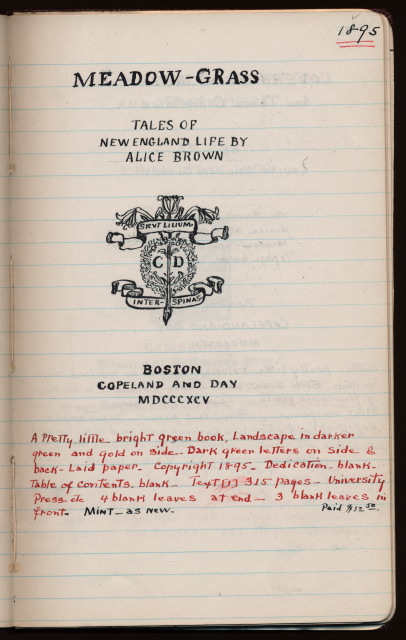 1895
MEADOW-GRASS
TALES OF
NEW ENGLAND LIFE BY
ALICE BROWN
SICVT LILIUM
C D
INTER SPINAS
BOSTON
COPELAND AND DAY
MDCCCXCV
A Pretty little bright green book, Landscape in darker
green and gold on side. Dark green letters on side &
back - Laid paper. Copyright 1895 - Dedication - blank -
Table of contents. blank - Text [1] 315 pages - University
Press etc 4 blank leaves at end - 3 blank leaves in
front. MINT - as new. Paid $12.50